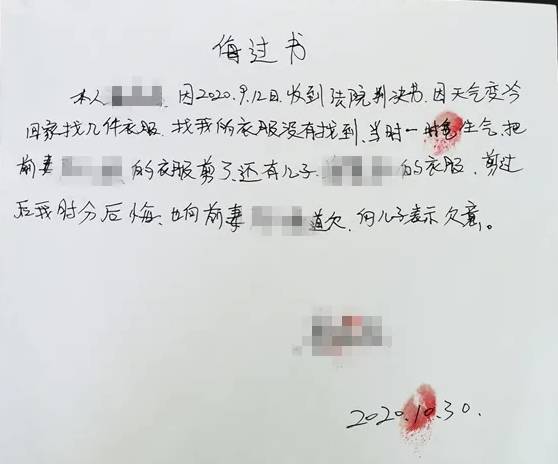 悔过书
本人 因2020.9.12日.收到法院判决书.因天气变冷
回家找几件衣服.找我的衣服没有找到.当时一时生气.把
前妻 的衣服剪了.还有儿子 的衣服.剪过
后我时分后悔、也向前妻 道欠.向儿子表示欠意。
2020.10.30.